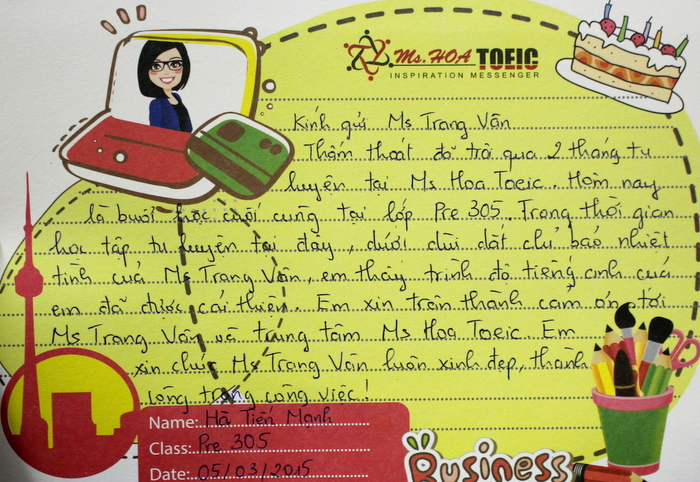 Ms. HOA TOEIC
INSPIRATION MESSENGER
Kính gửi Ms Trang Vân
Thấm thoát đã trôi qua 2 tháng tu
luyện tại Ms Hoa Toeic. Hôm nay
là buổi học cuối cùng tại lớp Pre 305. Trong thời gian
học tập tu luyện tại đây, dưới dìu dắt chỉ bảo nhiệt
tình của Ms Trang Vân, em thấy trình độ tiếng anh của
em đã được cải thiện. Em xin trân thành cảm ơn tới
Ms Trang Vân và trung tâm Ms Hoa Toeic. Em
xin chúc Ms Trang Vân luôn xinh đẹp, thành
công trong công việc!
Name: Hà Tiến Mạnh
Class: Pre 305
Date: 05/03/2015
Business